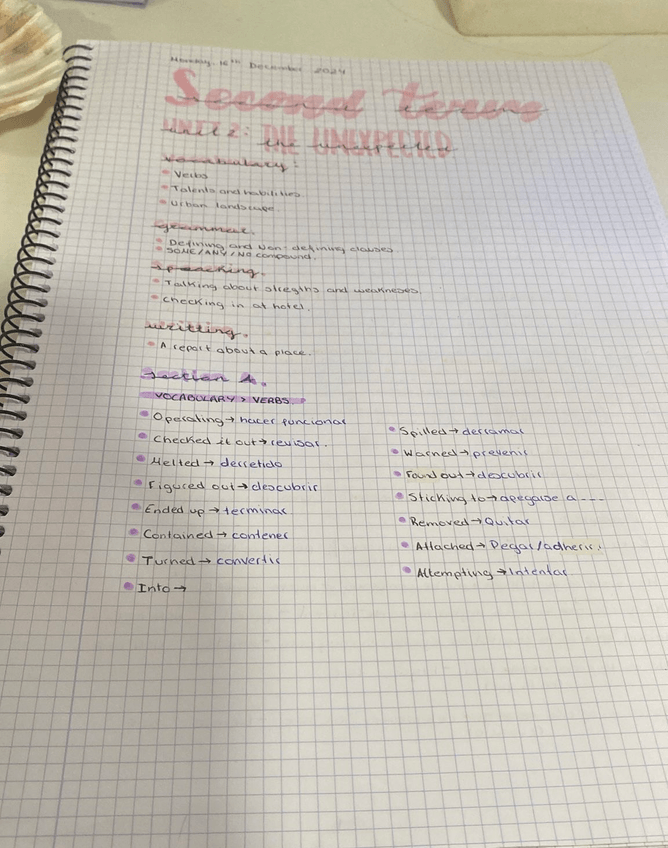 Monday, 16th December 2024
Second term
UNIT 2: THE UNEXPECTED
unit 2: the unexpected
vocabulary:
Verbs
Talents and habilities
Urban landscape
grammar.
Defining and Non-defining clauses
SOME/ANY/NO compound.
speaking.
Talking about stregths and weaknesses
checking in at hotel.
writting.
A report about a place.
section A.
VOCABULARY > VERBS
Operating → hacer funcional
Checked it out → revisar.
Melted → derretido
Figured out → descubrir
Ended up → terminar
Contained → contener
Turned → convertir
Into →
Spilled → derramar
Warned → prevenir
Found out → descubrir
Sticking to → apegarse a ---
Removed → Quitar
Attached → Pegar/adherir.
Attempting → Intentar